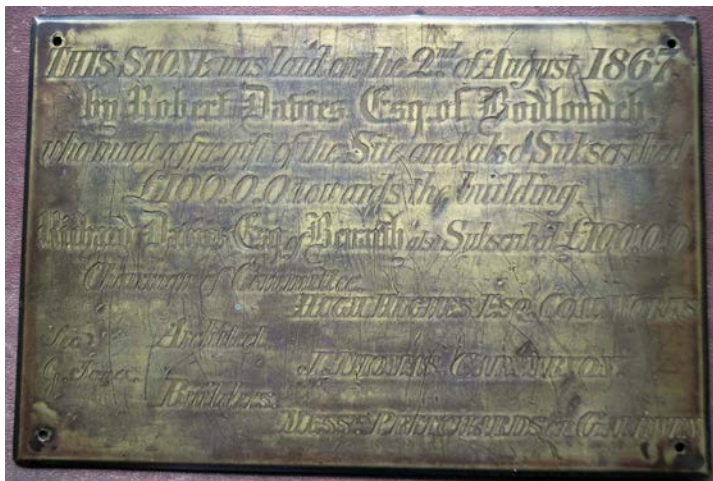 THIS STONE was laid on the 2nd of August 1867
by Robert Davies Esq. of Bodlondeb,
who made a free gift of the Site and also Subscribed
£100.0.0 towards the building
Richard Davies Esq of Benarth also Subscribed £100.0.0
Chairman of Committee
HUGH HUGHES ESQ. COM. WORKS
Architect
J. THOMAS CARNARVON
Builders.
MESSRS PRITCHARDS &